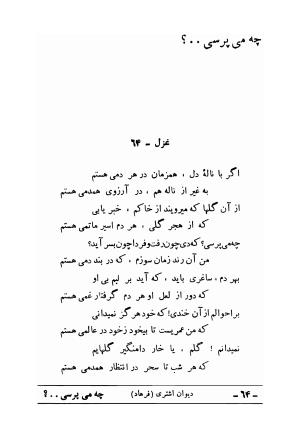 چه می پرسی ..؟
غزل - ۶۴
اگر با نالهٔ دل ، همزمان در هر دمی هستم
به غیر از ناله هم ، در آرزوی همدمی هستم
از آن گلها که میرویند از خاکم ، خبر یابی
که از هجر گلی ، هر دم اسیر ماتمی هستم
چه می پرسی؟ که دی چون رفت و فردا چون بسر آید؟
من آن رند زمان سوزم ، که در بند دمی هستم
بهر دم ، ساغری باید ، که آید بر لبم بی او
که دور از لعل او هر دم گرفتار غمی هستم
بر احوالم از آن خندی! که خود هرگز نمیدانی
که من محو یست تا بیخود ز خود در عالمی هستم
نمیدانم ! گلم ، یا خار دامنگیر گلهایم
که هر شب تا سحر در انتظار همدمی هستم
- ۶۴ -
دیوان اشتری (فرهاد)
چه می پرسی ..؟